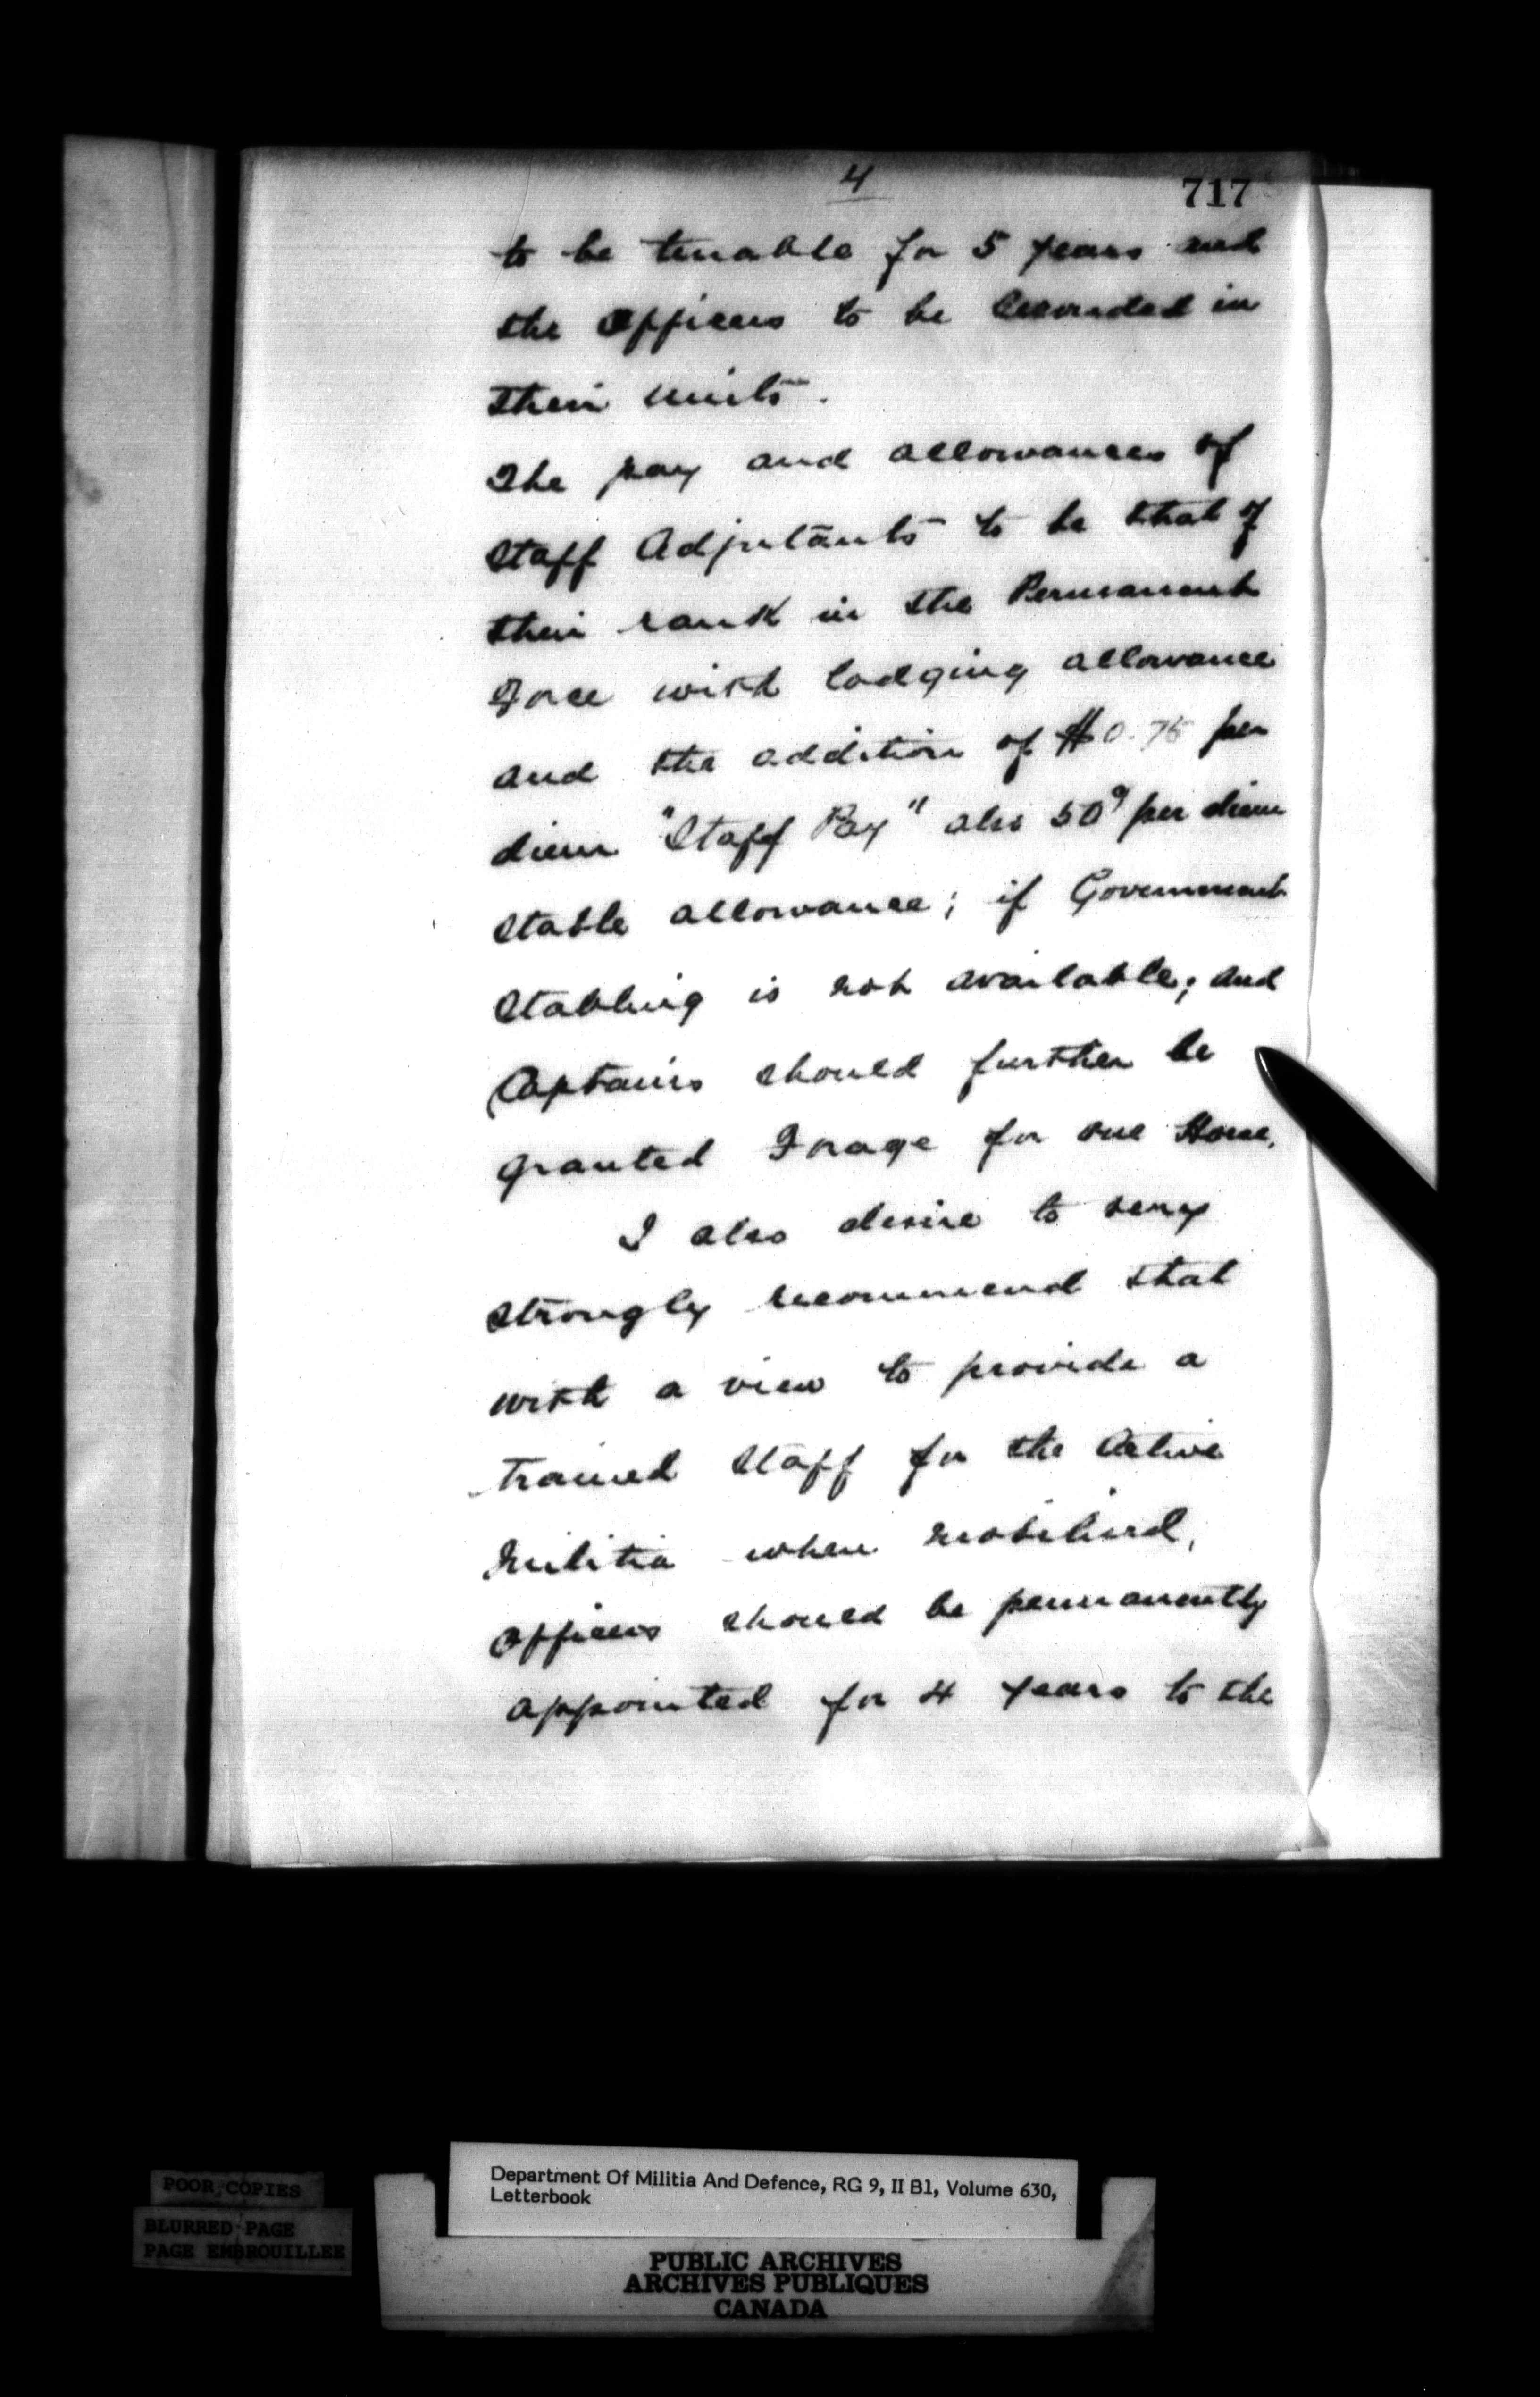 4
717
to be tenable for 5 years and
the Officers to be Seconded in
their units.
The pay and allowances of
Staff Adjutants to be that of
their rank in the Permanent
Force with lodging allowance
and the addition of $0.75 per
diem "Staff Pay" also 50¢ per diem
stable allowance; if Government
Stabling is not available; and
Captains should further be
granted Forage for one Horse.
I also desire to very
strongly recommend that
with a view to provide a
trained Staff for the Active
Militia when mobilized,
Officers should be permanently
appointed for 4 years to the
POOR COPIES
BLURRED PAGE
PAGE EMBROUILLEE
Department Of Militia And Defence, RG 9, II B1, Volume 630,
Letterbook
PUBLIC ARCHIVES
ARCHIVES PUBLIQUES
CANADA